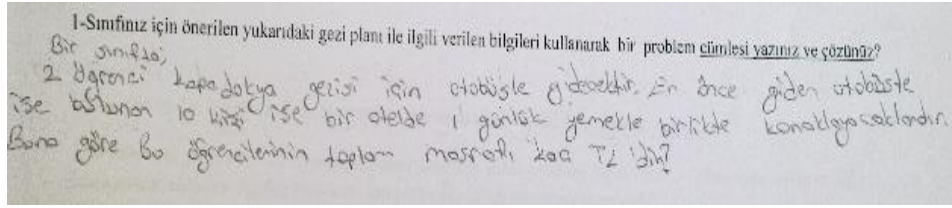 1-Sınıfınız için önerilen yukarıdaki gezi planı ile ilgili verilen bilgileri kullanarak bir problem cümlesi yazınız ve çözünüz?
Bir sınıfta;
2 öğrenci Kapadokya gezisi için otobüsle gidecektir. En önce giden otobüste
ise bulunan 10 kişi ise bir otelde 1 günlük yemekle birlikte konaklayacaklardır.
Buna göre bu öğrencilerinin toplam masrafı kaç TL'dir?